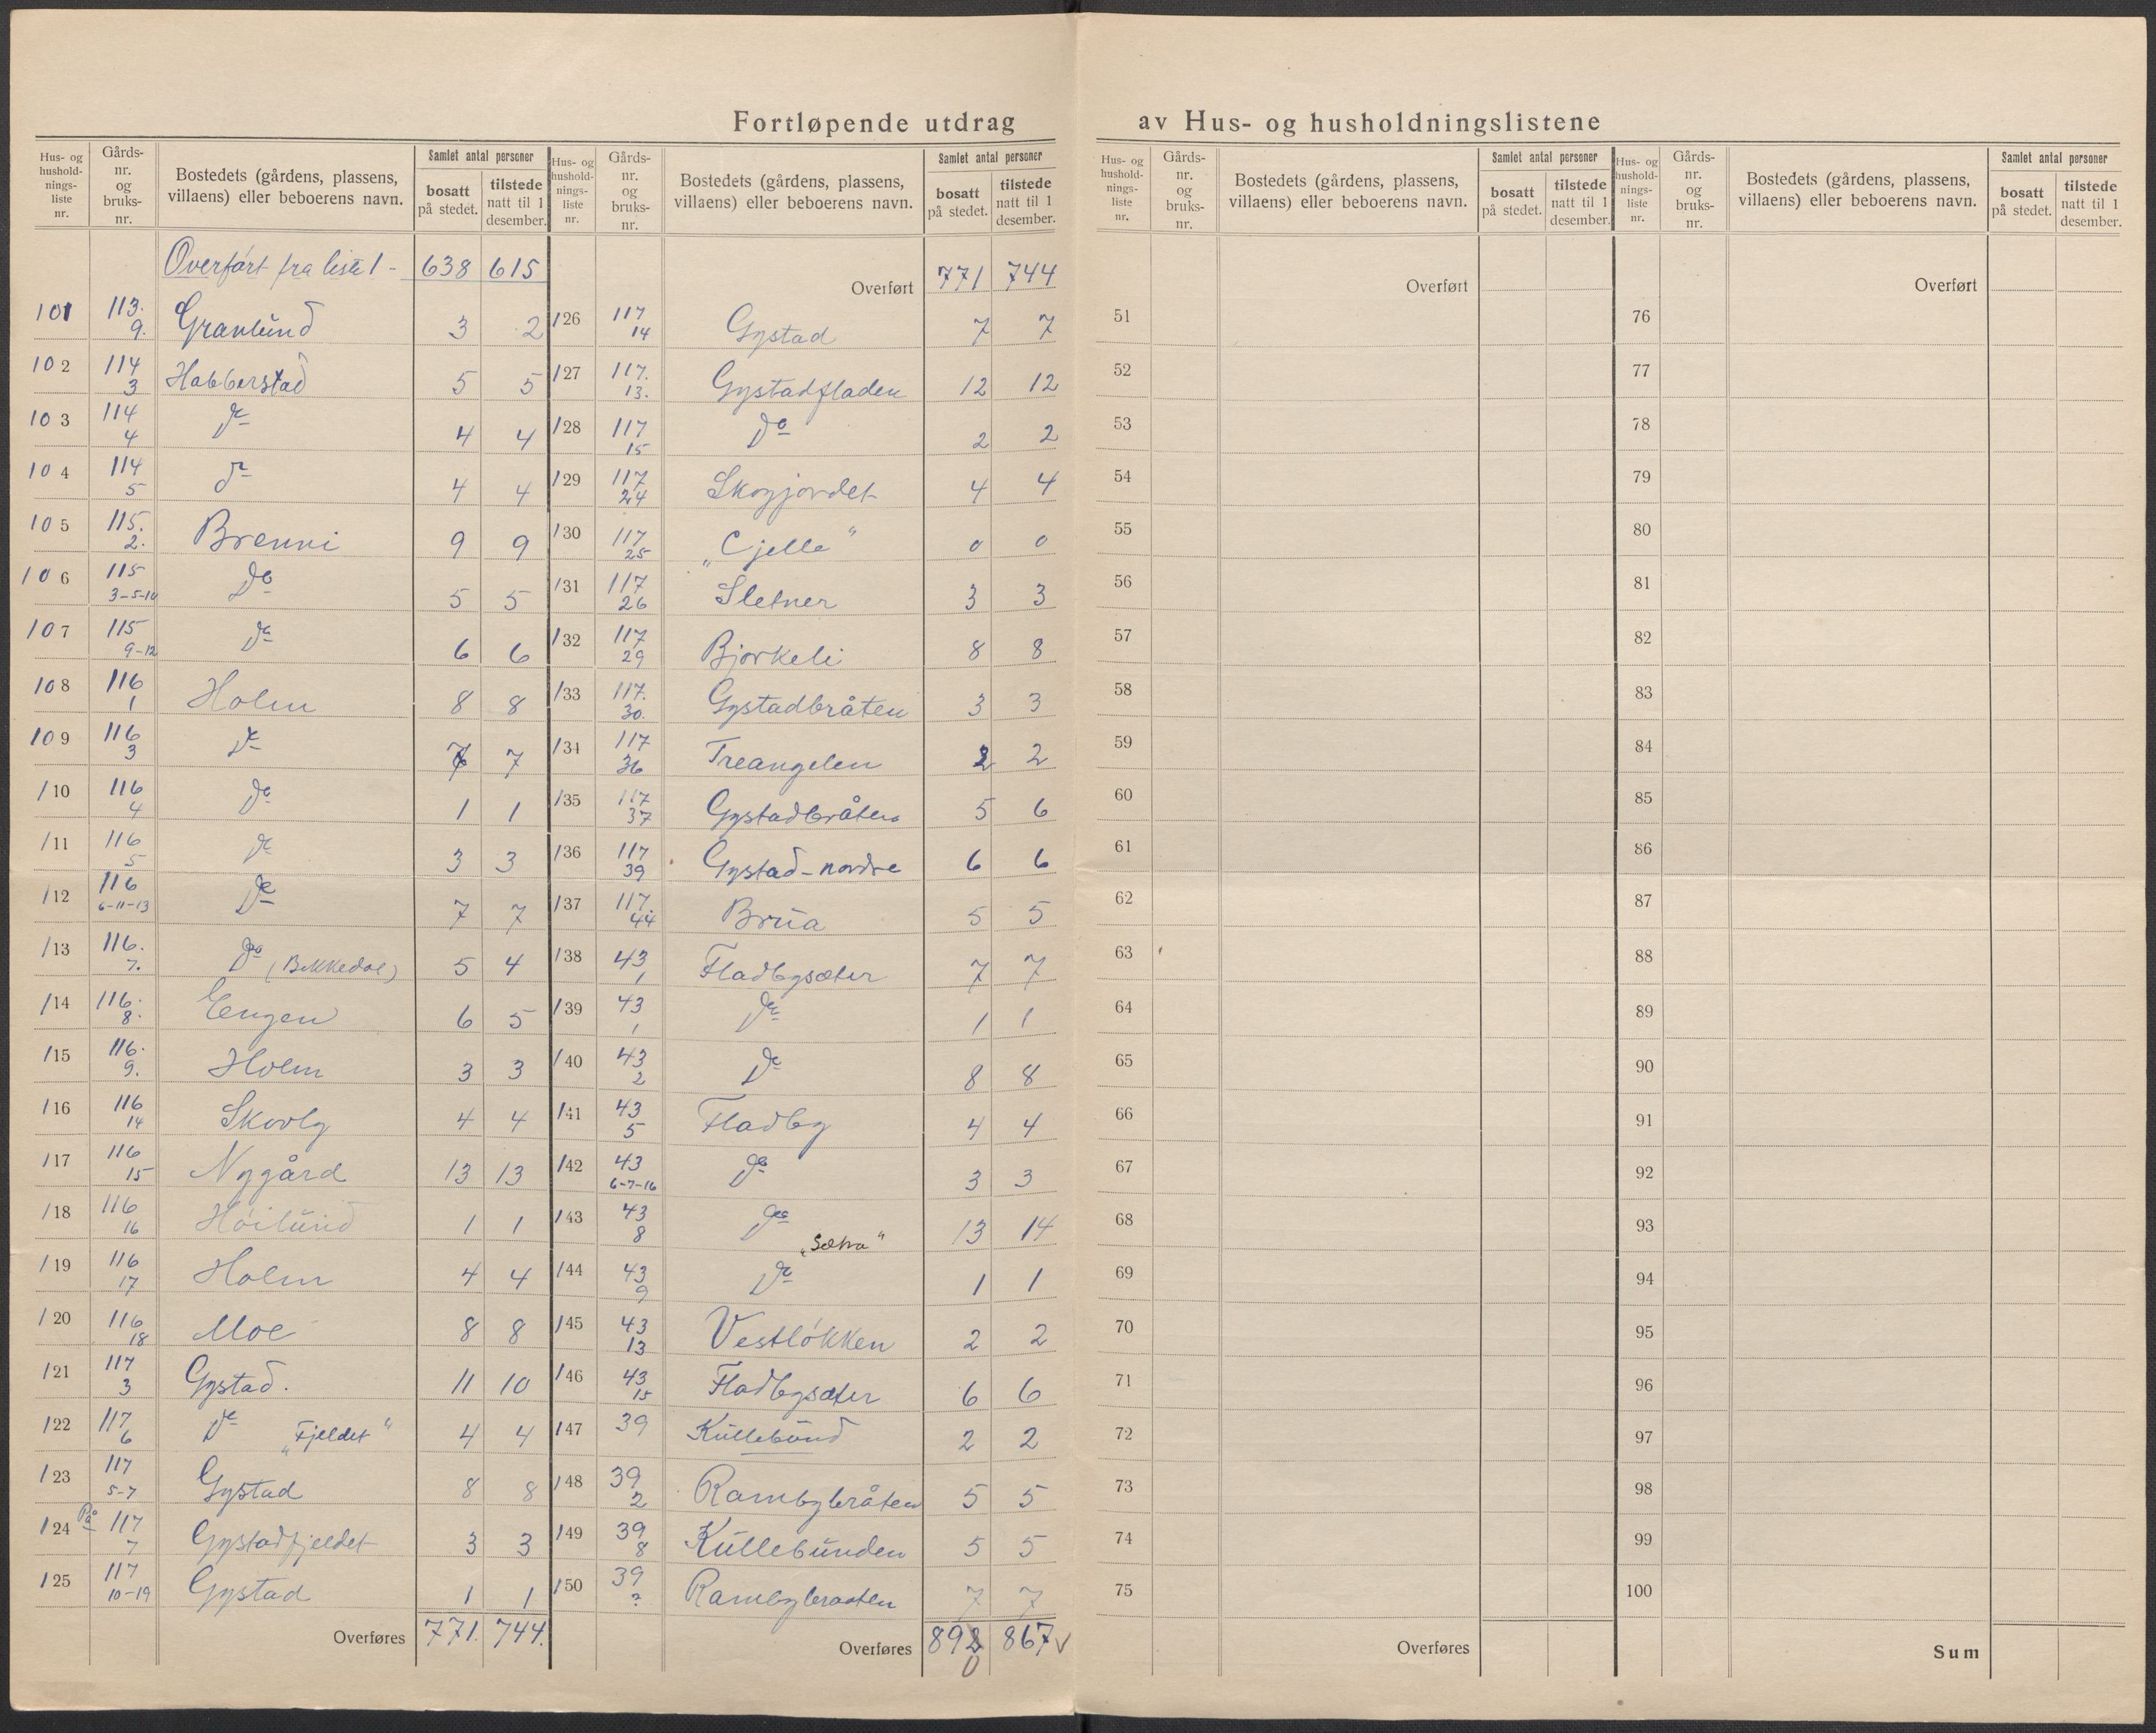 Fortløpende utdrag av Hus- og husholdningslistene
Hus- og husholdnings- liste nr. | Gårds- nr. og bruks- nr. | Bostedets (gårdens, plassens, villaens) eller beboerens navn. | Samlet antal personer bosatt på stedet. | tilstede natt til 1 desember.
Overført fra liste 1 - 638 615
101 113. 9. Granlund 3 2
102 114 3 Habberstad 5 5
103 114 4 Do 4 4
104 114 5 Do 4 4
105 115. 2. Brenni 9 9
106 115 3-5-10 Do 5 5
107 115 9-12 Do 6 6
108 116 1 Holm 8 8
109 116 3 Do 7 7
110 116 4 Do 1 1
111 116 5 Do 3 3
112 116 6-11-13 Do 7 7
113 116. 7. Do (Bekkedal) 5 4
114 116. 8. Engen 6 5
115 116. 9. Holm 3 3
116 116 14 Skovly 4 4
117 116 15 Nygård 13 13
118 116 16 Höilund 1 1
119 116 17 Holm 4 4
120 116 18 Moe 8 8
121 117 3 Gystad. 11 10
122 117 6 Do "Fjeldet" 4 4
123 117 5-7 Gystad 8 8
124 På 117 7 Gystadfjeldet 3 3
125 117 10-19 Gystad 1 1
Overføres 771. 744.
Hus- og husholdnings- liste nr. | Gårds- nr. og bruks- nr. | Bostedets (gårdens, plassens, villaens) eller beboerens navn. | Samlet antal personer bosatt på stedet. | tilstede natt til 1 desember.
Overført 771 744
126 117 14 Gystad 7 7
127 117. 13. Gystadfladen 12 12
128 117 15 Do 2 2
129 117 24 Skogjordet 4 4
130 117 25 "Cjelle" 0 0
131 117 26 Sletner 3 3
132 117 29 Bjorkeli 8 8
133 117. 30. Gystadbråten 3 3
134 117 36 Treangelen 2 2
135 117 37 Gystadbråten 5 6
136 117 39 Gystad-nordre 6 6
137 117. 44 Brua 5 5
138 43 1 Fladbysæter 7 7
139 43 1 Do 1 1
140 43 2 Do 8 8
141 43 5 Fladby 4 4
142 43 6-7-16 Do 3 3
143 43 8 Do 13 14
144 43 9 Do "Sætra" 1 1
145 43 13 Vestlökken 2 2
146 43 15 Fladbysæter 6 6
147 39 Kullebund 2 2
148 39 2 Rambybråten 5 5
149 39 8 Kullebunden 5 5
150 39 ? Rambybraaten 7 7
Overføres 892 0 867 v
Hus- og husholdnings- liste nr. | Gårds- nr. og bruks- nr. | Bostedets (gårdens, plassens, villaens) eller beboerens navn. | Samlet antal personer bosatt på stedet. | tilstede natt til 1 desember.
Overført
51
52
53
54
55
56
57
58
59
60
61
62
63
64
65
66
67
68
69
70
71
72
73
74
75
Overføres
Hus- og husholdnings- liste nr. | Gårds- nr. og bruks- nr. | Bostedets (gårdens, plassens, villaens) eller beboerens navn. | Samlet antal personer bosatt på stedet. | tilstede natt til 1 desember.
Overført
76
77
78
79
80
81
82
83
84
85
86
87
88
89
90
91
92
93
94
95
96
97
98
99
100
Sum